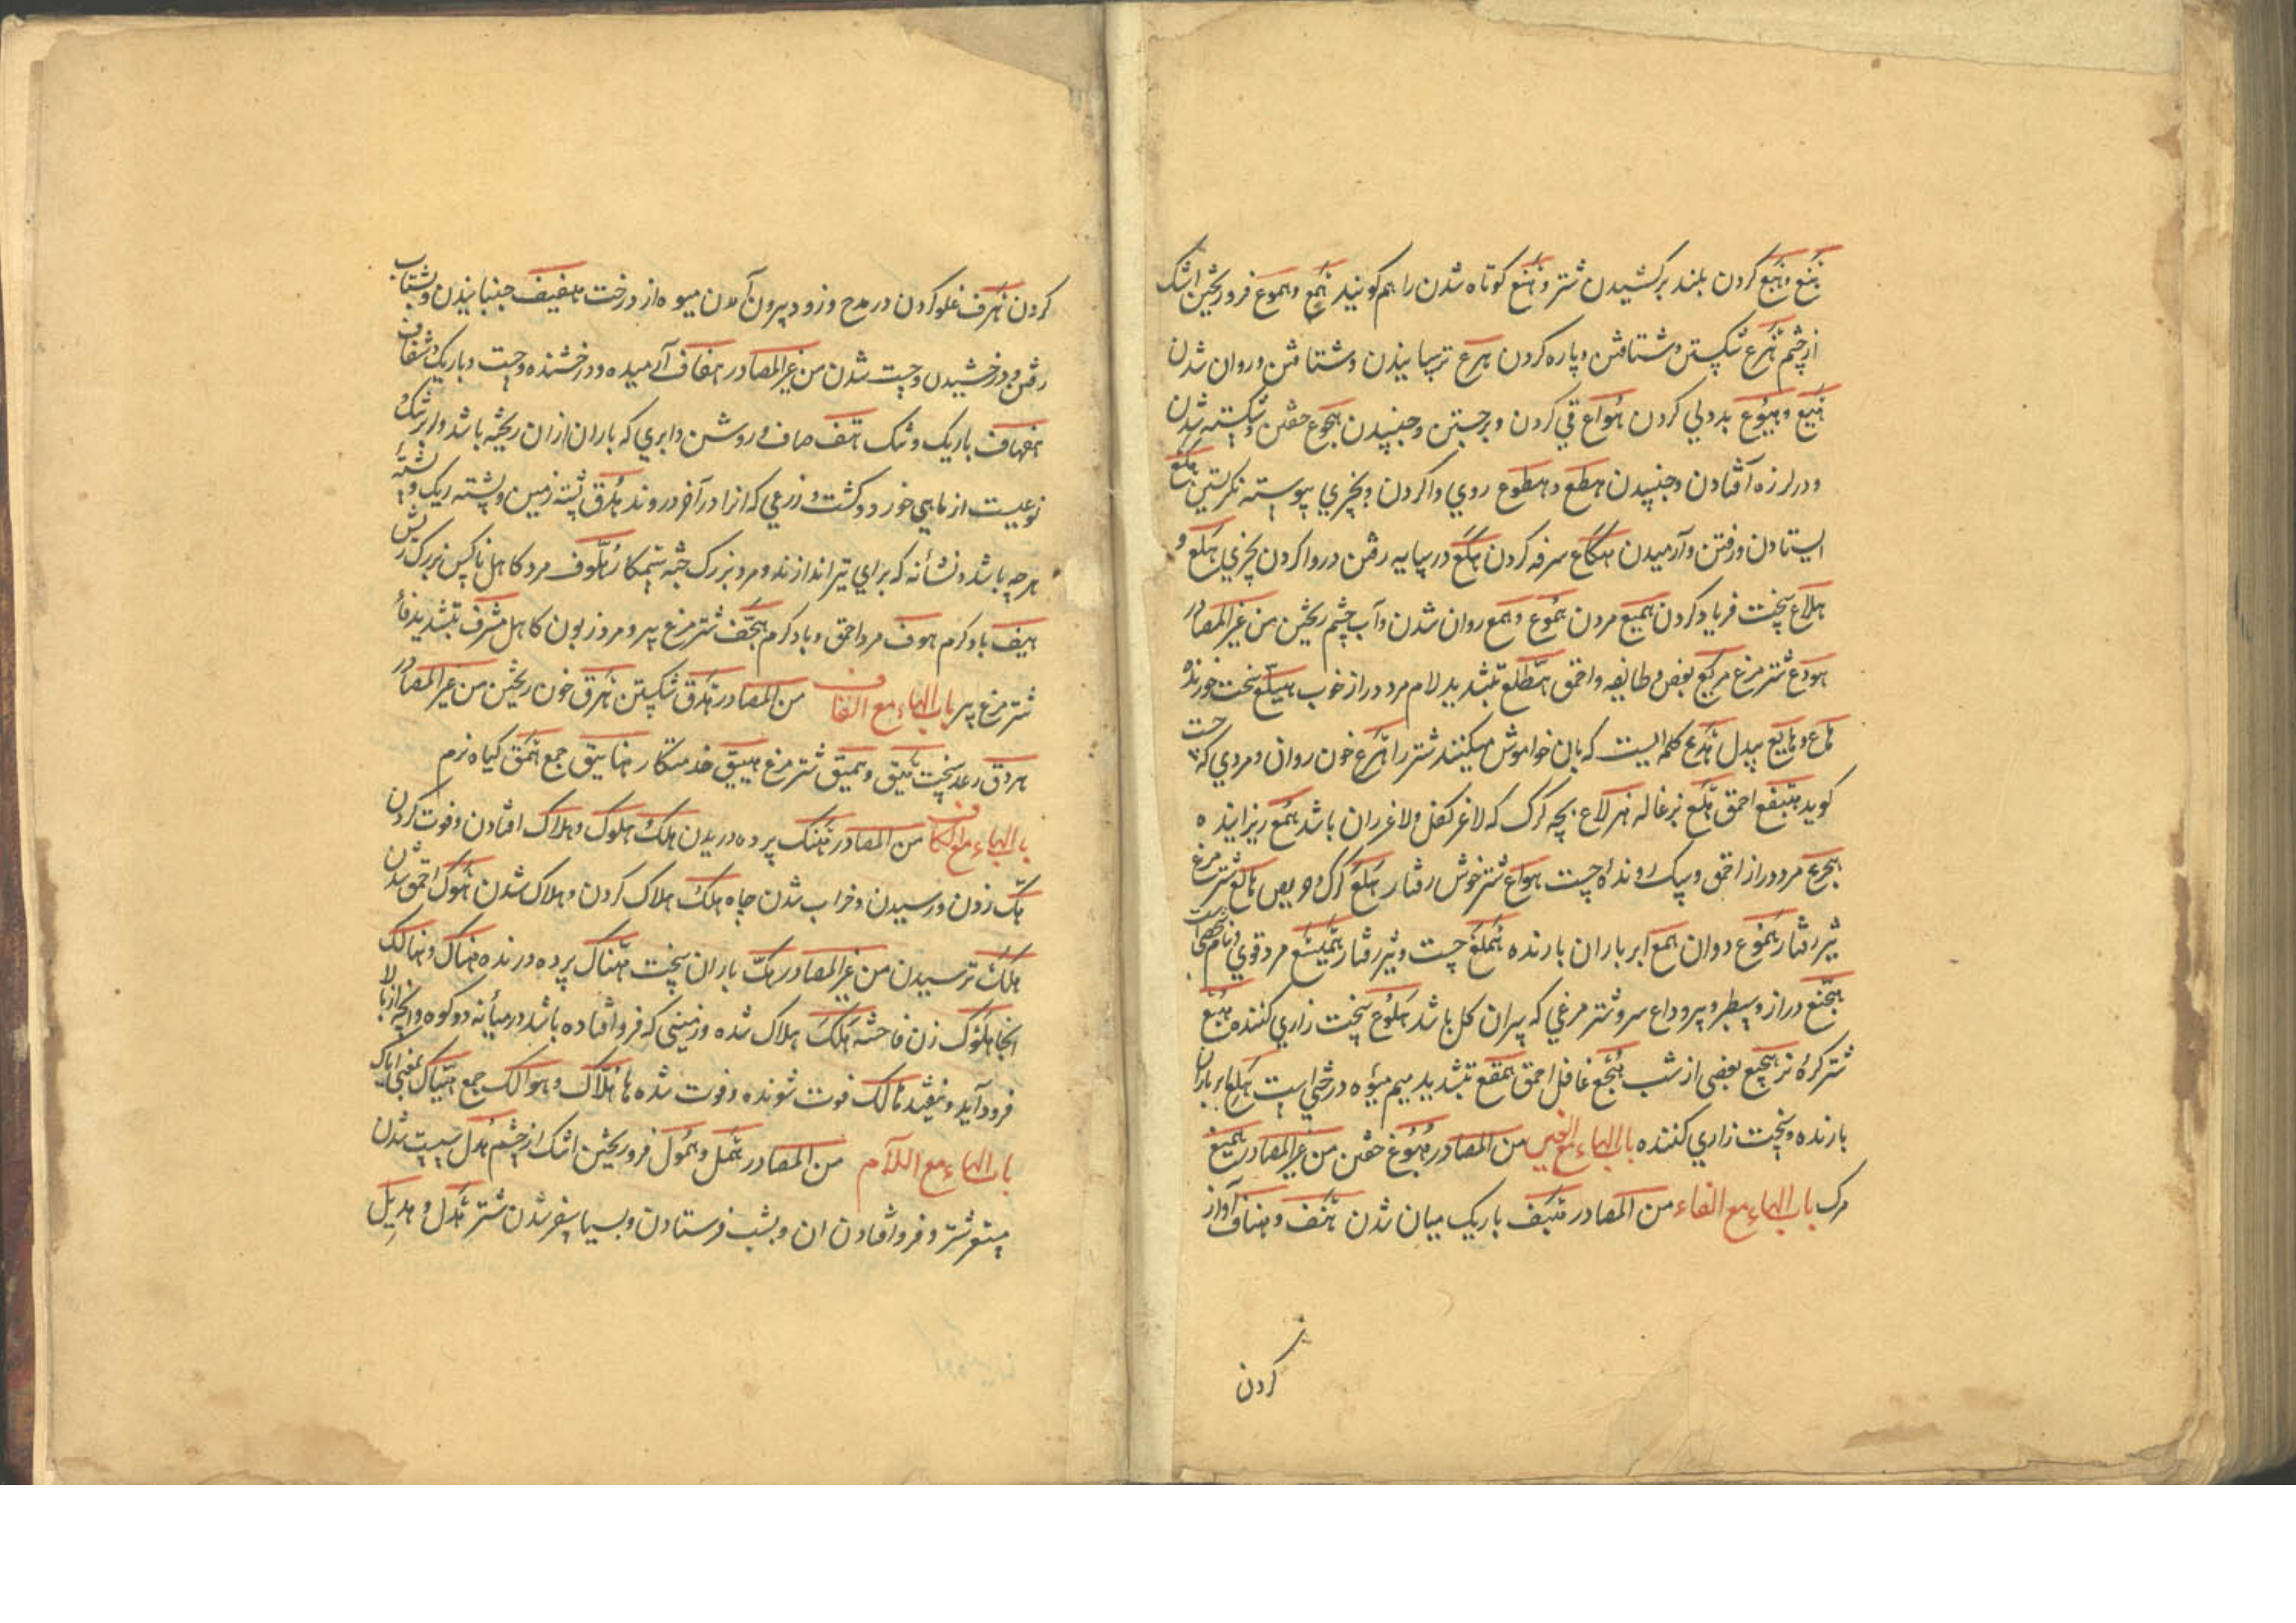 هُبَع گردن بلند برکشیدن شتر و هُنَع کوتاه شدن را هم گویند هَمْع و هموع فرو ریختن اشک
از چشم هَزْع شکستن و شتافتن و پاره کردن هرع ترسانیدن و شتافتن و روان شدن
هَیْع و هیوع بددلی کردن هُواع قی کردن و برجستن و جنبیدن هجوع خفتن و شکسته شدن
و در لرزه افتادن و جنبیدن هطع و هطوع روی وا کردن و بچیزی پیوسته نگریستن هکع
ایستادن و رفتن و آرمیدن هکاع سرفه کردن هکع در سایه رفتن و روا کردن بچیزی هلع و
هلاع سخت فریاد کردن همیع مردن هموع و همع روان شدن و آب چشم ریختن من غیر المصادر
هودع شترمرغ هزیع بعض و طایفه و احمق هطلع بتشدید لام مرد دراز خوب هبلع سخت خورنده
هاع و هایع بیدل هدع کلمه ایست که بان خواموش میکنند شتر را هرع خون روان و مردی که
گوید هبنقع احمق هلع بزغاله نر هلاع بچه گرگ که لاغر کفل و لاغر ران باشد همع ریزاینده
هجرع مرد دراز احمق و سبک رونده چست هواع شتر خوش رفتار هلع گرگ و حریص هالع شترمرغ
تیز رفتار هموع دوان همع ابر باران بارنده هملع چست و تیز رفتار همیسع مرد قوی
هجنع دراز و سطبر و پیر و داغ سر و شترمرغی که پیر ان کل باشد هلوع سخت زاری کننده هبع
شتر کره نر هجیع بعضی از شب هجع غافل احمق همقع بتشدید میم میوه درختی است هلع ابر باران
بارنده و سخت زاری کننده باب الهاء مع الغین من المصادر هبوغ خفتن من غیر المصادر همیغ
مرگ باب الهاء مع الفاء من المصادر هیف باریک میان شدن هتف و هتاف آواز
کردن
کردن هرف غلو کردن در مدح و زود بیرون آمدن میوه از درخت هفیف جنبانیدن و بشتاب
رفتن و درخشیدن و چست شدن من غیر المصادر هفاف آرامیده و درخشنده و چست و باریک و شفاف
هفهاف باریک و تنک هف صاف و روشن و ابری که باران ازان ریخته باشد و ابر تنک و
نوعیست از ماهی خورد و کشت و زرعی که انرا در آخر دروند هدف پشته زمین و پشته ریک و پشته
هرچه باشد و نشانه که برای تیر اندازند و مرد بزرگ جثه ستمکار هلوف مرد کاهل ناکس بزرگ ریش
هیف باد گرم هوف مرد احمق و باد گرم هجف شترمرغ پیر و مرد زبون کاهل هزف بتشدید فا
شترمرغ پیر باب الهاء مع القاف من المصادر هدق شکستن هرق خون ریختن من غیر المصادر
هیق و هیق شترمرغ هبنیق خدمتکار هبانیق جمع همق گیاه نرم
باب الهاء مع الکاف من المصادر هتک پرده دریدن هلک هلوک و هلاک افتادن و فوت کردن
هک زدن و رسیدن و خراب شدن چاه هلک هلاک کردن و هلاک شدن هوک احمق شدن
هلک ترسیدن من غیر المصادر هک باران سخت هتاک پرده درنده هناک و هنالک
انجا هلوک زن فاحشه هلک هلاک شده و زمینی که فرو افتاده باشد در میانه دو کوه و انچه از بالا
فرود آید و بیفتد هالک فوت شونده و فوت شده هلاک و هوالک جمع هیاک بمعنی ایاک
باب الهاء مع اللام من المصادر همل و همول فرو ریختن اشک از چشم هدل سست شدن
شتر و فرو افتادن ان و بشب فرستادن شدن شتر هدل و هدیل